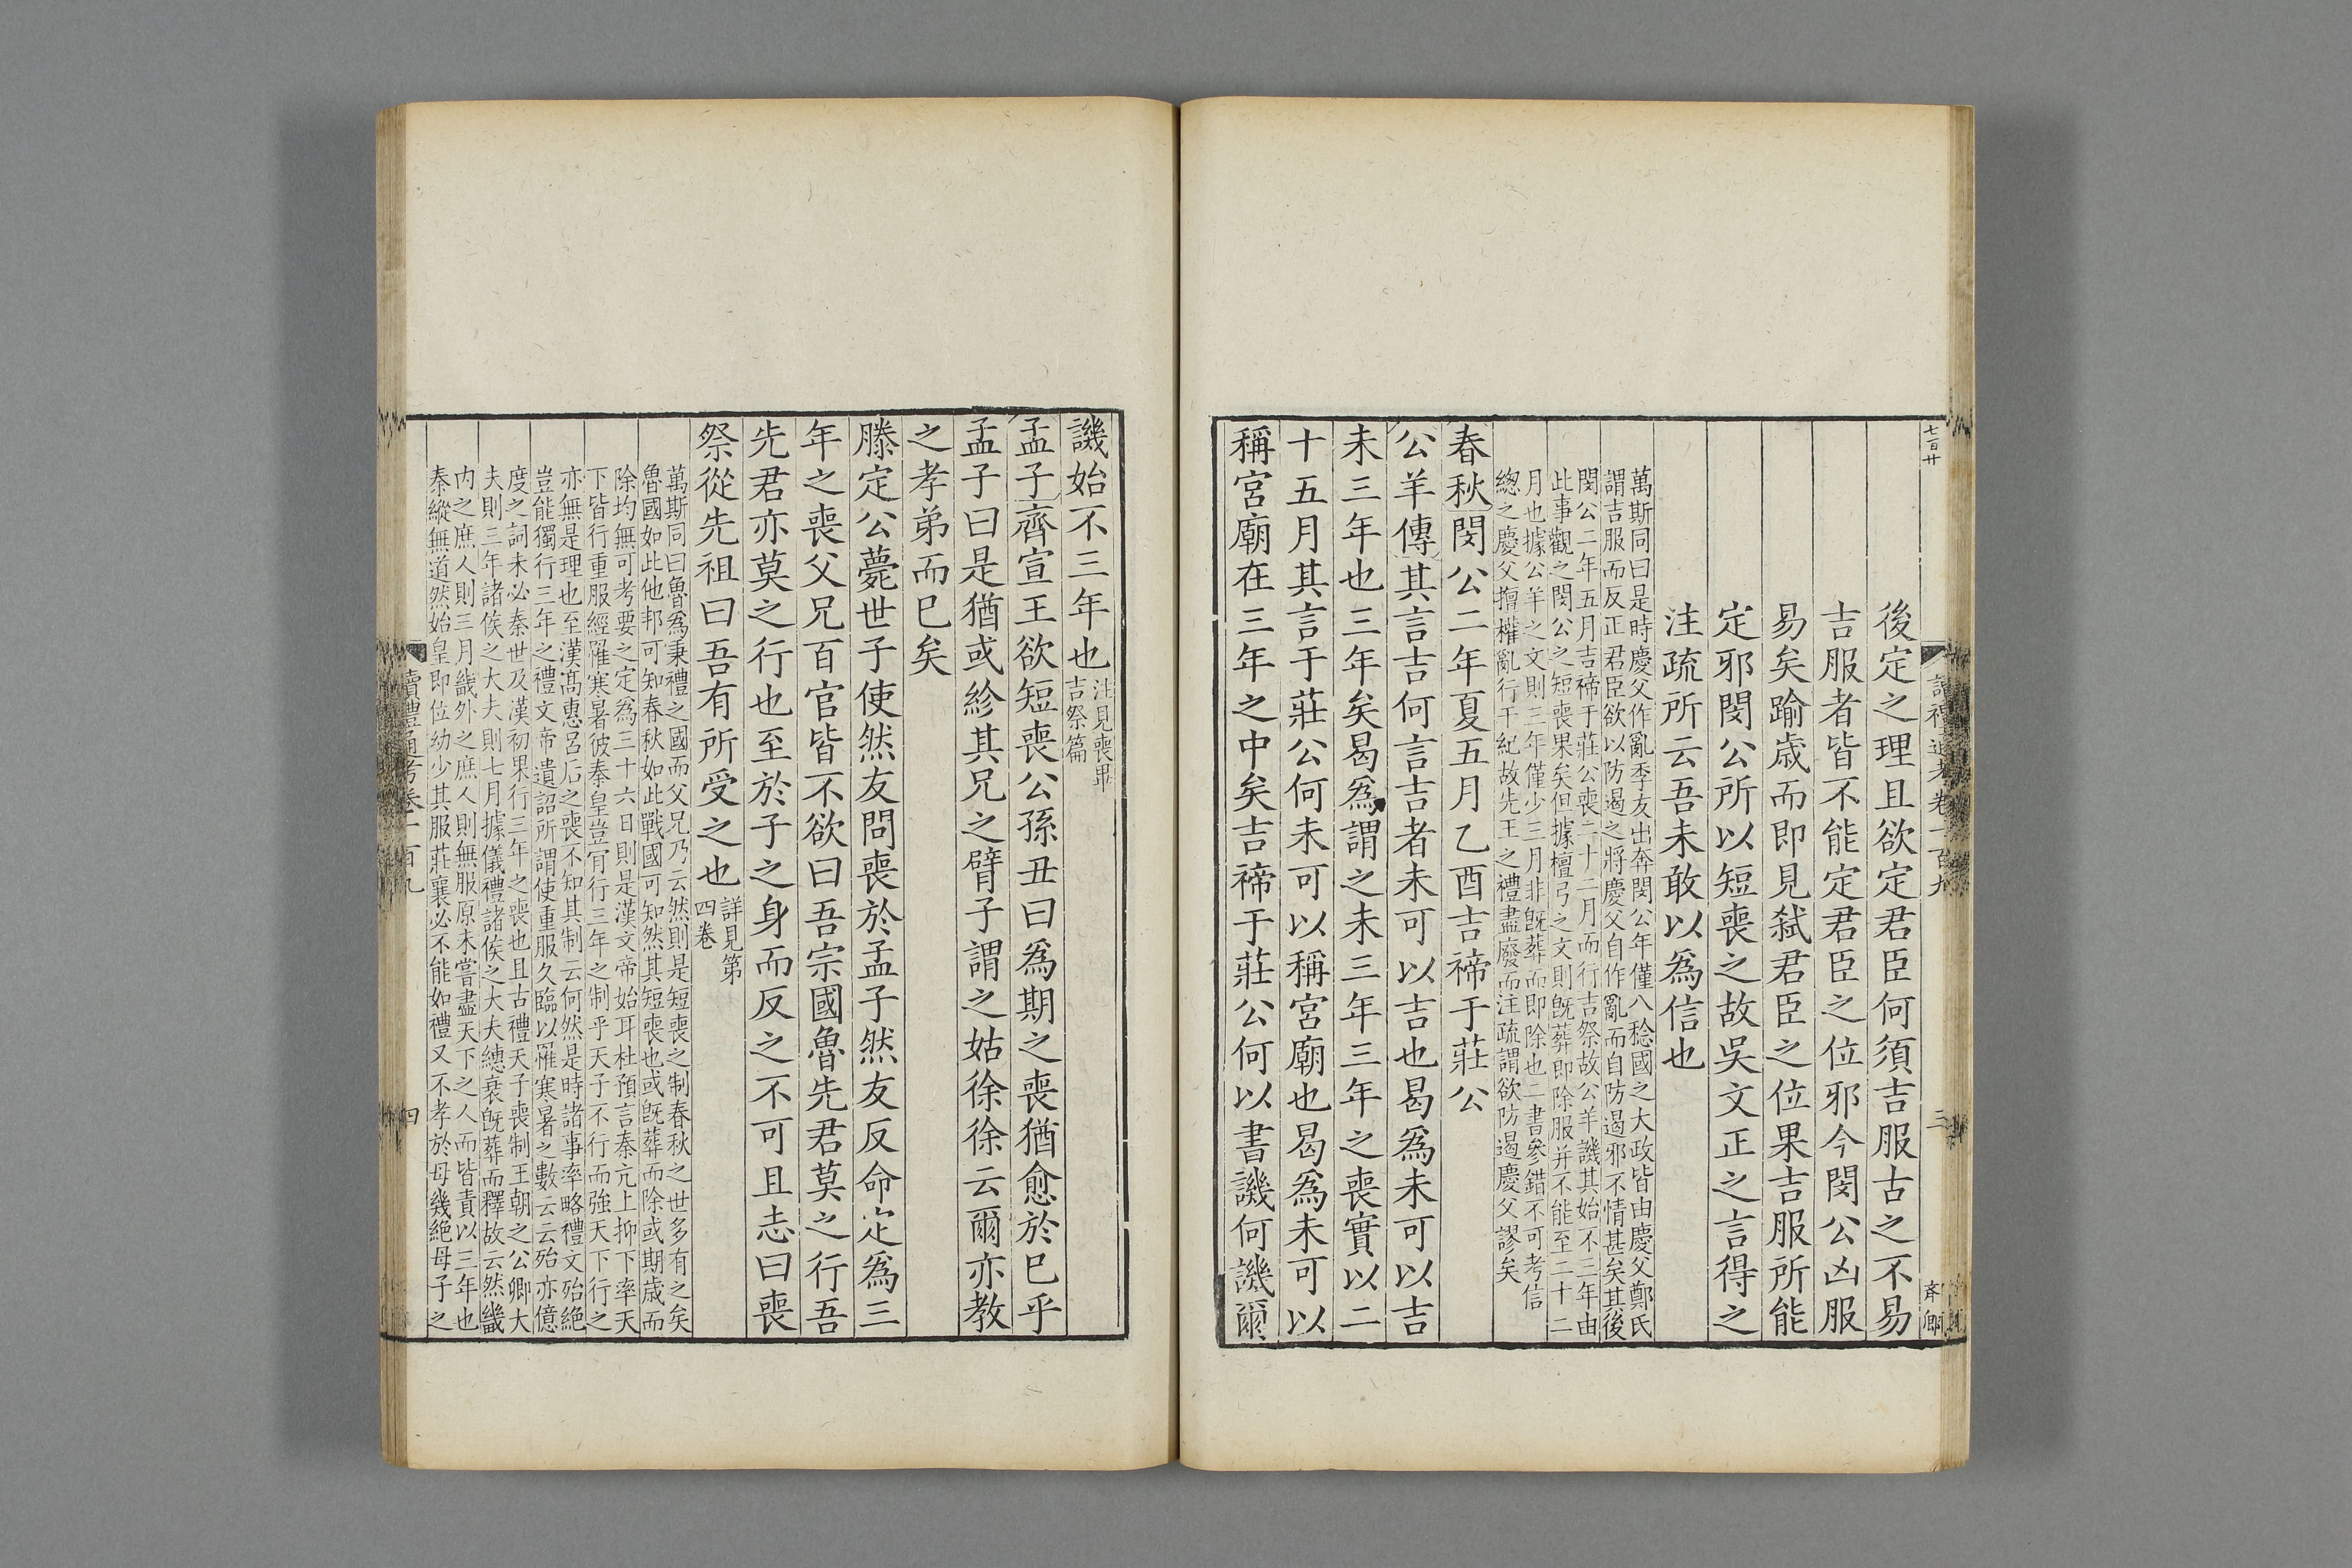 七百廾
讀禮通考卷一百九
三
後定之理且欲定君臣何須吉服古之不易
吉服者皆不能定君臣之位邪今閔公凶服
易矣踰歲而即見弑君臣之位果吉服所能
定邪閔公所以短喪之故吳文正之言得之
注疏所云吾未敢以爲信也
萬斯同曰是時慶父作亂季友出奔閔公年僅八稔國之大政皆由慶父鄭氏
謂吉服而反正君臣欲以防遏之將慶父自作亂而自防遏邪不情甚矣其後
閔公二年五月吉禘于莊公喪二十二月而行吉祭故公羊譏其始不三年由
此事觀之閔公之短喪果矣但據檀弓之文則旣葬即除服并不能至二十二
月也據公羊之文則三年僅少三月非旣葬而即除也二書參錯不可考信
總之慶父擅權亂行干紀故先王之禮盡廢而注疏謂欲防遏慶父謬矣
春秋閔公二年夏五月乙酉吉禘于莊公
公羊傳其言吉何言吉者未可以吉也曷爲未可以吉
未三年也三年矣曷爲謂之未三年三年之喪實以二
十五月其言于莊公何未可以稱宮廟也曷爲未可以
稱宮廟在三年之中矣吉禘于莊公何以書譏何譏爾
譏始不三年也注見喪畢
吉祭篇
孟子齊宣王欲短喪公孫丑曰爲期之喪猶愈於已乎
孟子曰是猶或紾其兄之臂子謂之姑徐徐云爾亦教
之孝弟而已矣
滕定公薨世子使然友問喪於孟子然友反命定爲三
年之喪父兄百官皆不欲曰吾宗國魯先君莫之行吾
先君亦莫之行也至於子之身而反之不可且志曰喪
祭從先祖曰吾有所受之也詳見第
四卷
萬斯同曰魯爲秉禮之國而父兄乃云然則是短喪之制春秋之世多有之矣
魯國如此他邦可知春秋如此戰國可知然其短喪也或旣葬而除或期歲而
除均無可考要之定爲三十六日則是漢文帝始耳杜預言秦亢上抑下率天
下皆行重服經罹寒暑彼秦皇豈肎行三年之制乎天子不行而強天下行之
亦無是理也至漢高惠呂后之喪不知其制云何然是時諸事率略禮文殆絕
豈能獨行三年之禮文帝遺詔所謂使重服久臨以罹寒暑之數云云殆亦億
度之詞未必秦世及漢初果行三年之喪也且古禮天子喪制王朝之公卿大
夫則三年諸侯之大夫則七月據儀禮諸侯之大夫繐衰旣葬而釋故云然畿
内之庶人則三月畿外之庶人則無服原未嘗盡天下之人而皆責以三年也
秦縱無道然始皇即位幼少其服莊襄必不能如禮又不孝於母幾絕母子之
讀禮通考卷一百九
四